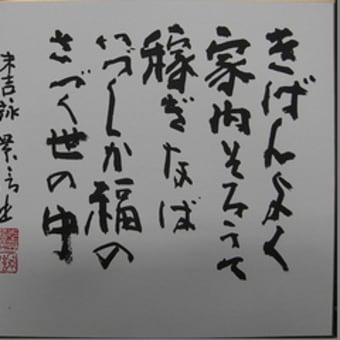 きげんよく
家内そろうて
稼ぎなば
いつしか福の
さづく世の中
末吉詠